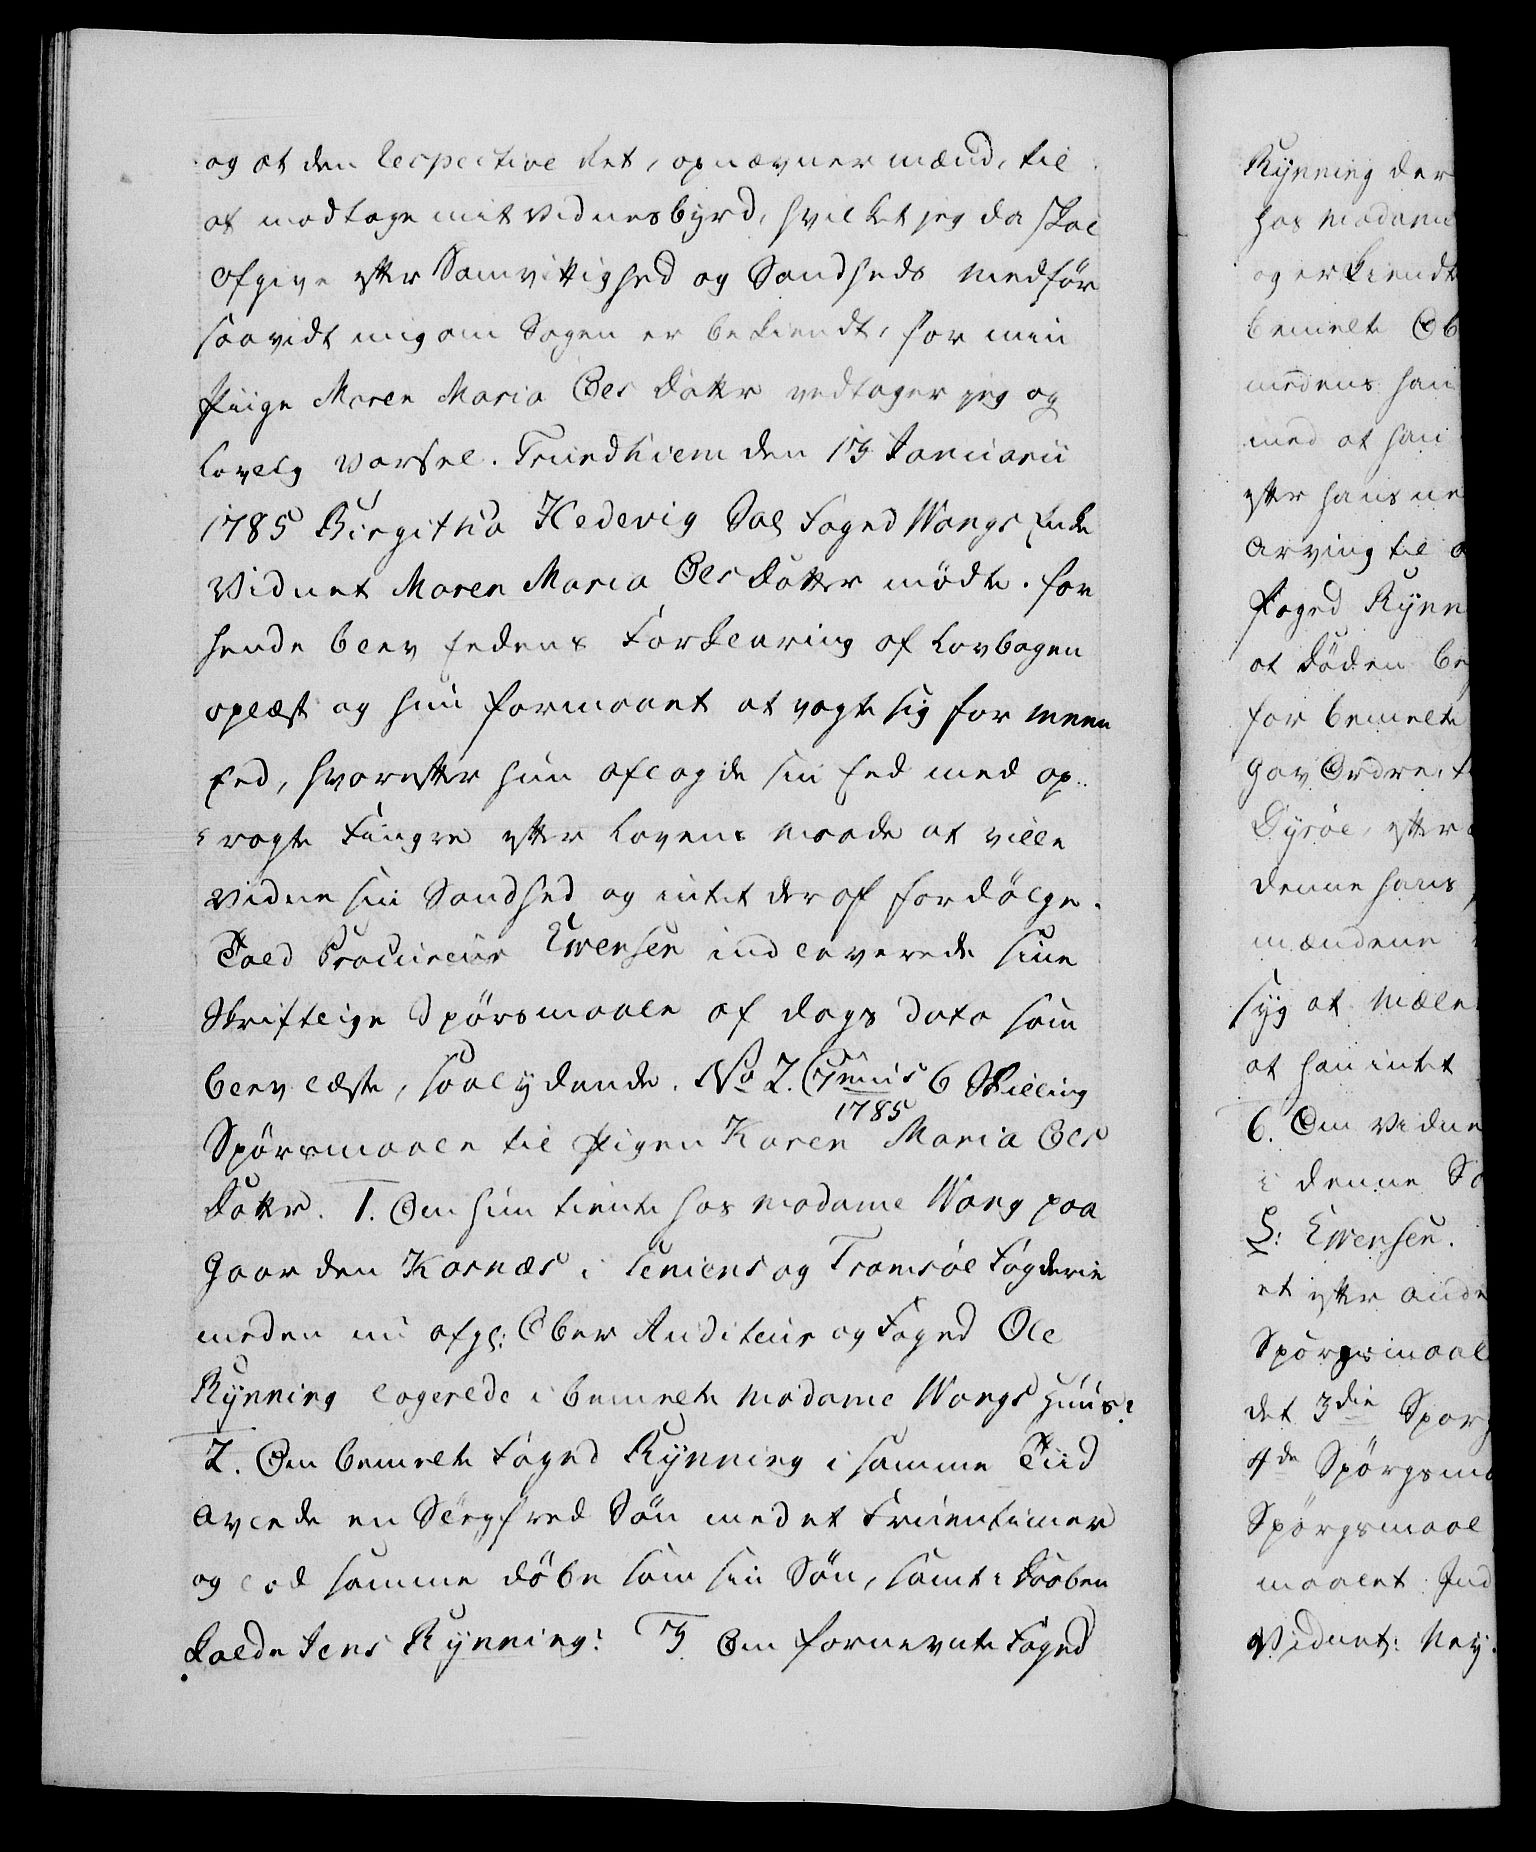 og at den respective Ret, opnævner mænd, til
at modtage mit Vidnesbyrd, hvilket jeg da skal
afgive efter Samvittighed og Sandheds medfør
saavidt mig om Sagen er bekiendt, for min
Piige Maren Maria Ols Datter vedtager jeg og
lovlig Varsel. Trundhiem den 13 Januarii
1785 Birgitha Hedevig Sal Foged Wangs Enke
Vidnet Maren Maria Ols Datter mødte. for
hende blev Eedens Forklaring af Lovbogen
oplæst og hun formanet at vogte sig for meen
Eed, hvorefter hun aflagde sin Eed med op
ragte Fingre efter Lovens maade at ville
vidne sin Sandhed og intet deraf fordølge.
Told Procureur Ewensen indleverede sine
Skriftlige Spørsmaale af dags dato som
blev læste, saalydende. No 2. 6 Skilling
1785
Spørsmaale til Pigen Karen Maria Ols
Datter. 1. Om hun tiente hos madame Wang paa
Gaarden Kornæs i Seniens og Tromsøe Fogderie
meden nu afgl: Ober Auditeur og Foged Ole
Rynning logerede i bemelte madame Wangs Huus?
2. Om bemelte Foged Rynning i samme Tiid
avlede en Slegfred Søn med et Fruentimer
og lod samme døbe som sin Søn, samt i Daaben
kalde Jens Rynning? 3 Om fornevnte Foged
Rynning der
hos madame
og erkiendte
bemelte Ob
medens han
med at han
efter hans ne
Arving til
Foged Rynn
at Døden be
for bemelte
gav Ordre, t
Dyrøe, efter
denne hans
mændene
syg at mæle
at han intet
6. Om Vidne
i denne Sa
S: Ewensen.
et efter ande
Spørgsmaal
det 3die Spørg
4de Spørgsma
Spørgsmaal
maalet Ind
Vidnet: Ney.